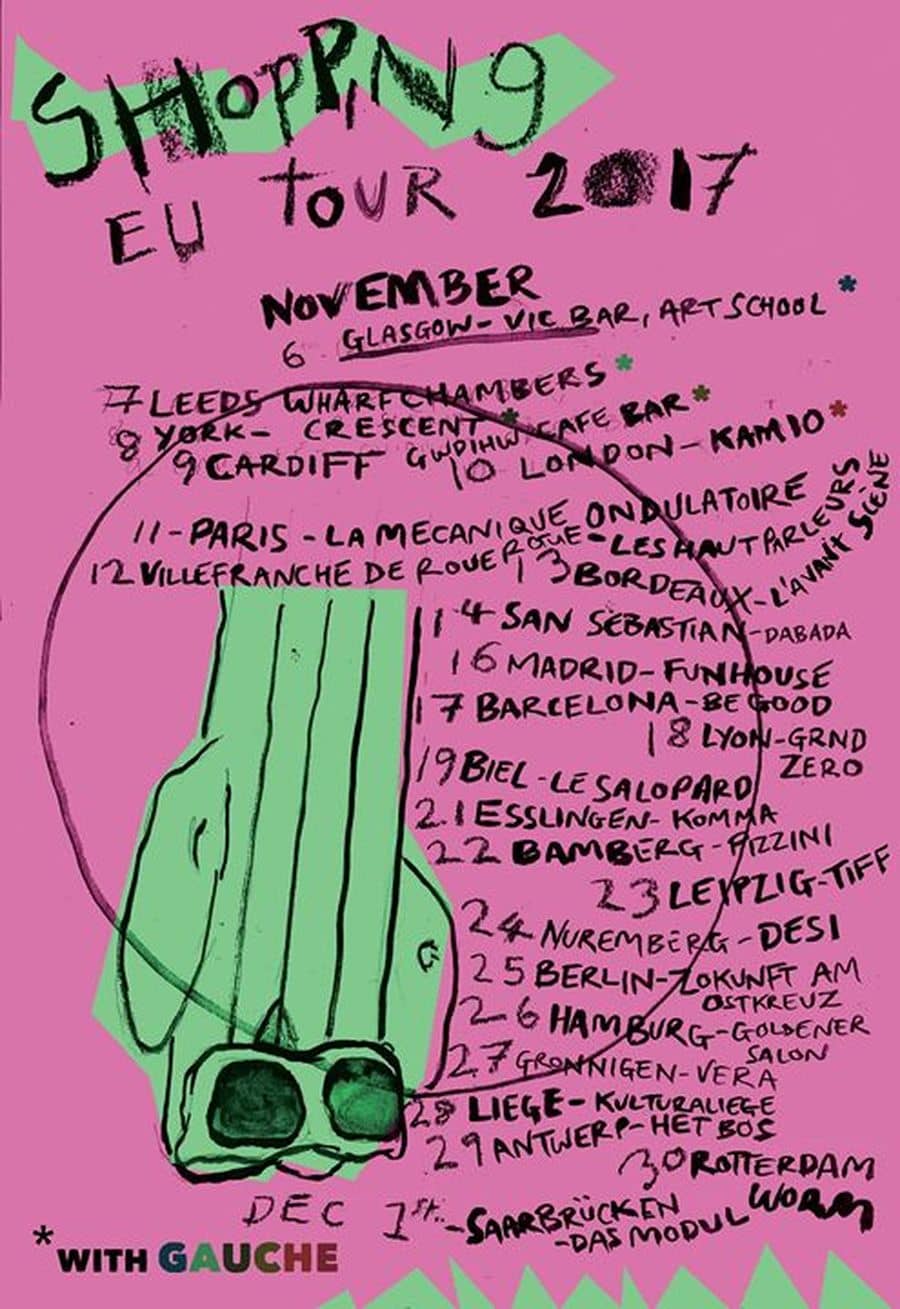 SHOPPING
EU TOUR 2017
NOVEMBER
6 GLASGOW - VIC BAR, ART SCHOOL *
7 LEEDS WHARFCHAMBERS *
8 YORK - CRESCENT *
9 CARDIFF GWDIHW CAFE BAR *
10 LONDON - KAMIO *
11 - PARIS - LA MECANIQUE ONDULATOIRE
12 VILLEFRANCHE DE ROUERGUE - LES HAUT PARLEURS
13 BORDEAUX - L'AVANT SCÈNE
14 SAN SEBASTIAN - DABADA
16 MADRID - FUNHOUSE
17 BARCELONA - BE GOOD
18 LYON - GRND
ZERO
19 BIEL - LE SALOPARD
21 ESSLINGEN - KOMMA
22 BAMBERG - PIZZINI
23 LEIPZIG - TIFF
24 NUREMBERG - DESI
25 BERLIN - ZOKUNFT AM
OSTKREUZ
26 HAMBURG - GOLDENER
SALON
27 GRONNIGEN - VERA
28 LIEGE - KULTURALIEGE
29 ANTWERP - HET BOS
30 ROTTERDAM
WORM
DEC 1st. - SAARBRÜCKEN
- DAS MODUL
* WITH GAUCHE